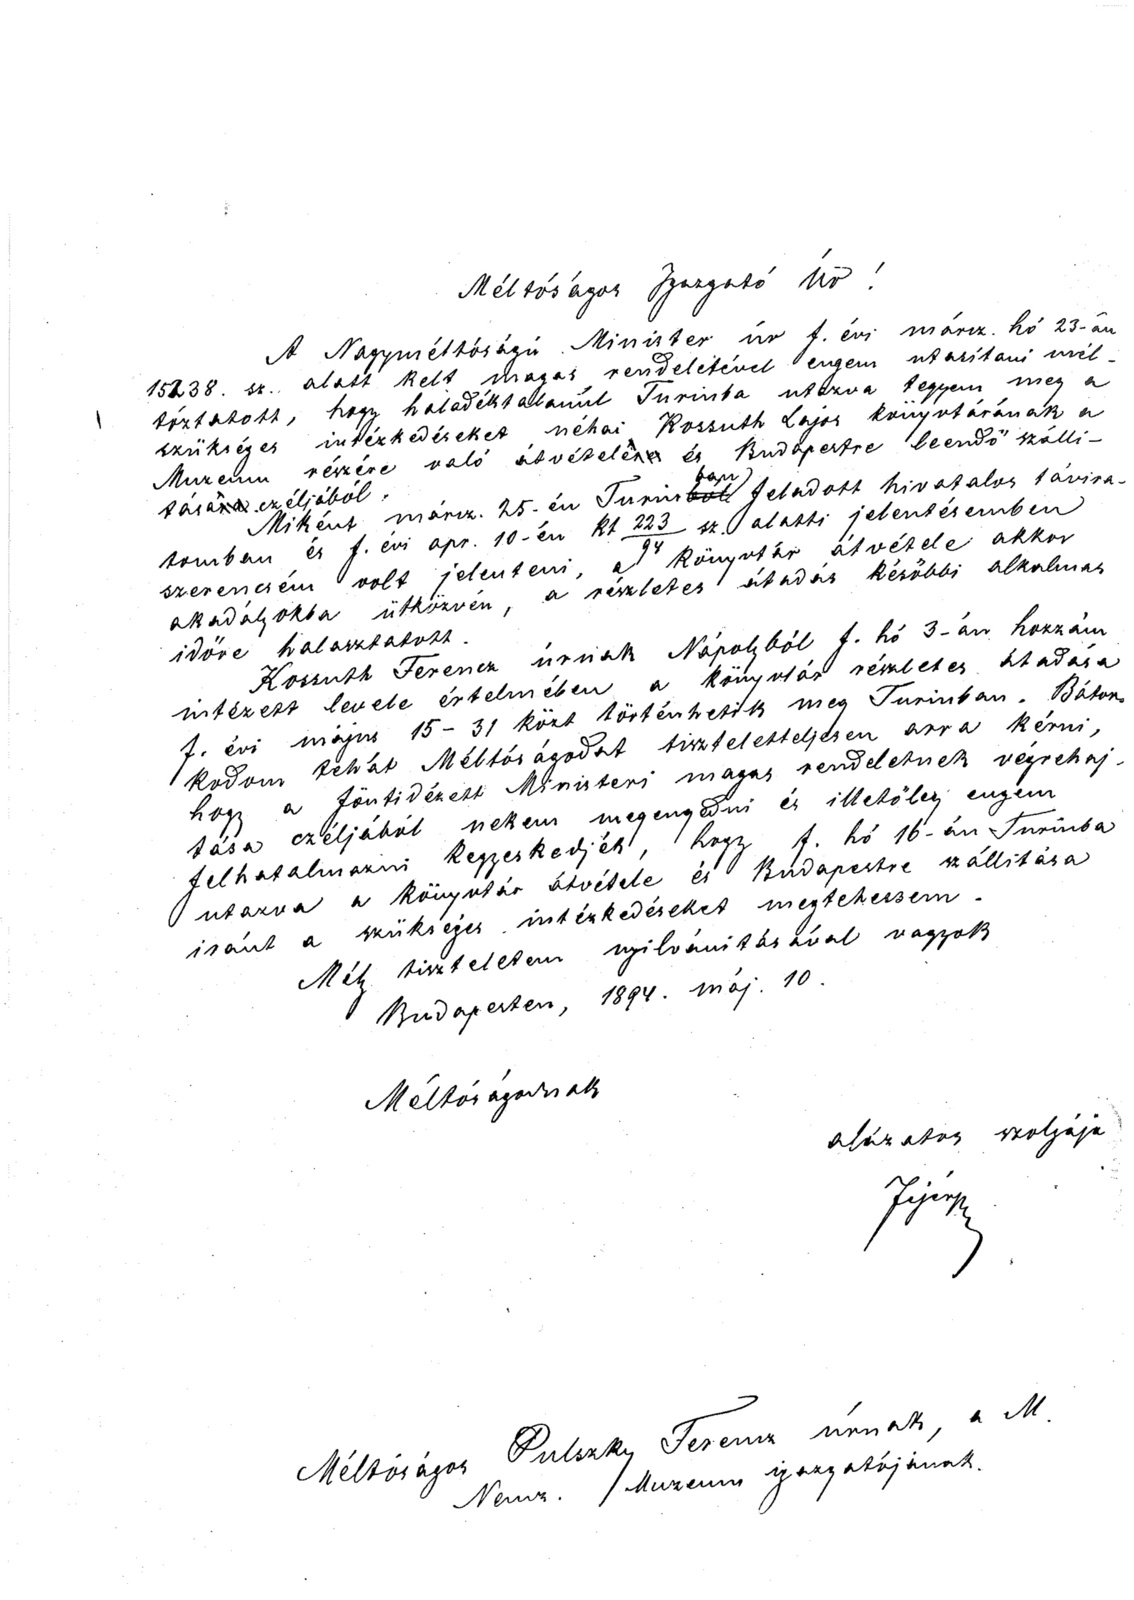 Méltóságos Igazgató Úr!
A Nagyméltóságú Minister úr f. évi márcz. hó 23-án
15238. sz. alatt kelt magas rendeletével engem utasitani mél-
tóztatott, hogy haladéktalanúl Turinba utazva tegyem meg a
szükséges intézkedéseket néhai Kossuth Lajos könyvtárának a
Muzeum részére való átvétele és Budapestre leendő szálli-
tása czéljából.
Miként márcz. 25-én Turinban feladott hivatalos távira-
tomban és f. évi apr. 10-én kt 223/94 sz. alatti jelentésemben
szerencsém volt jelenteni, a könyvtár átvétele akkor
akadályokba ütközvén, a részletes átadás későbbi alkalmas
időre halasztatott.
Kossuth Ferencz úrnak Nápolyból f. hó 3-án hozzám
intézett levele értelmében a könyvtár részletes átadása
f. évi május 15-31 közt történhetik meg Turinban. Bátor-
kodom tehát Méltóságodat tiszteletteljesen arra kérni,
hogy a föntidézett Ministeri magas rendeletnek végrehaj-
tása czéljából nekem megengedni és illetőleg engem
felhatalmazni kegyeskedjék, hogy f. hó 16-án Turinba
utazva a könyvtár átvétele és Budapestre szállitása
iránt a szükséges intézkedéseket megtehessem.
Mély tiszteletem nyilvánitásával vagyok
Budapesten, 1894. máj. 10.
Méltóságodnak
alázatos szolgája
Méltóságos Pulszky Ferencz úrnak, a M.
Nemz. Muzeum igazgatójának.